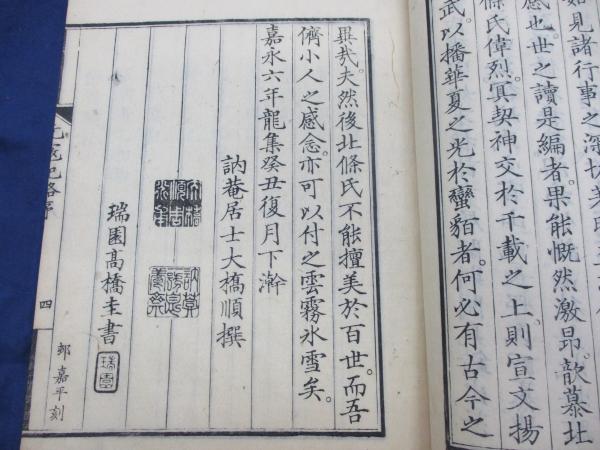 如見諸行事之深切著
感也。世之讀是編者。果能慨然激昂。歆慕北
條氏偉烈。冥契神交於千載之上。則宣文揚
武。以播華夏之光於蠻貊者。何必有古今之
異哉。夫然後北條氏不能擅美於百世。而吾
儕小人之感念。亦可以付之雲霧氷雪矣。
嘉永六年龍集癸丑復月下澣
訥菴居士大橋順撰
瑞園高橋圭書
瑞園
元寇紀略序
四
郊嘉平刻